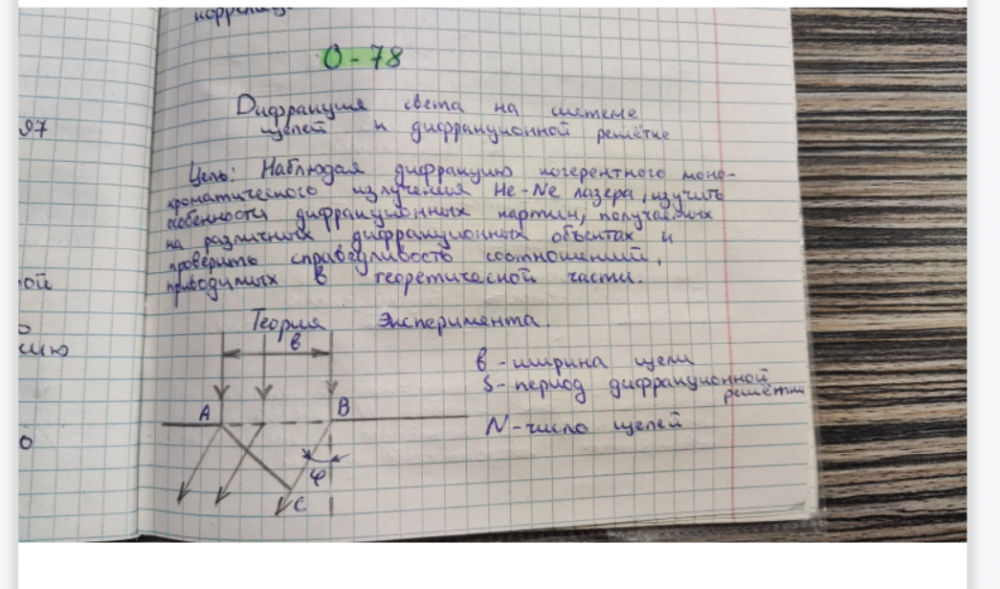 О-78
97
Дифракция света на системе
щелей и дифракционной решётке
Цель: Наблюдая дифракцию когерентного моно-
хроматического излучения He-Ne лазера, изучить
особенности дифракционных картин, получаемых
на различных дифракционных объектах и
проверить справедливость соотношений,
приводимых в теоретической части.
ой
Теория эксперимента.
в
в - ширина щели
S - период дифракционной
решётки
А В
N - число щелей
φ
С